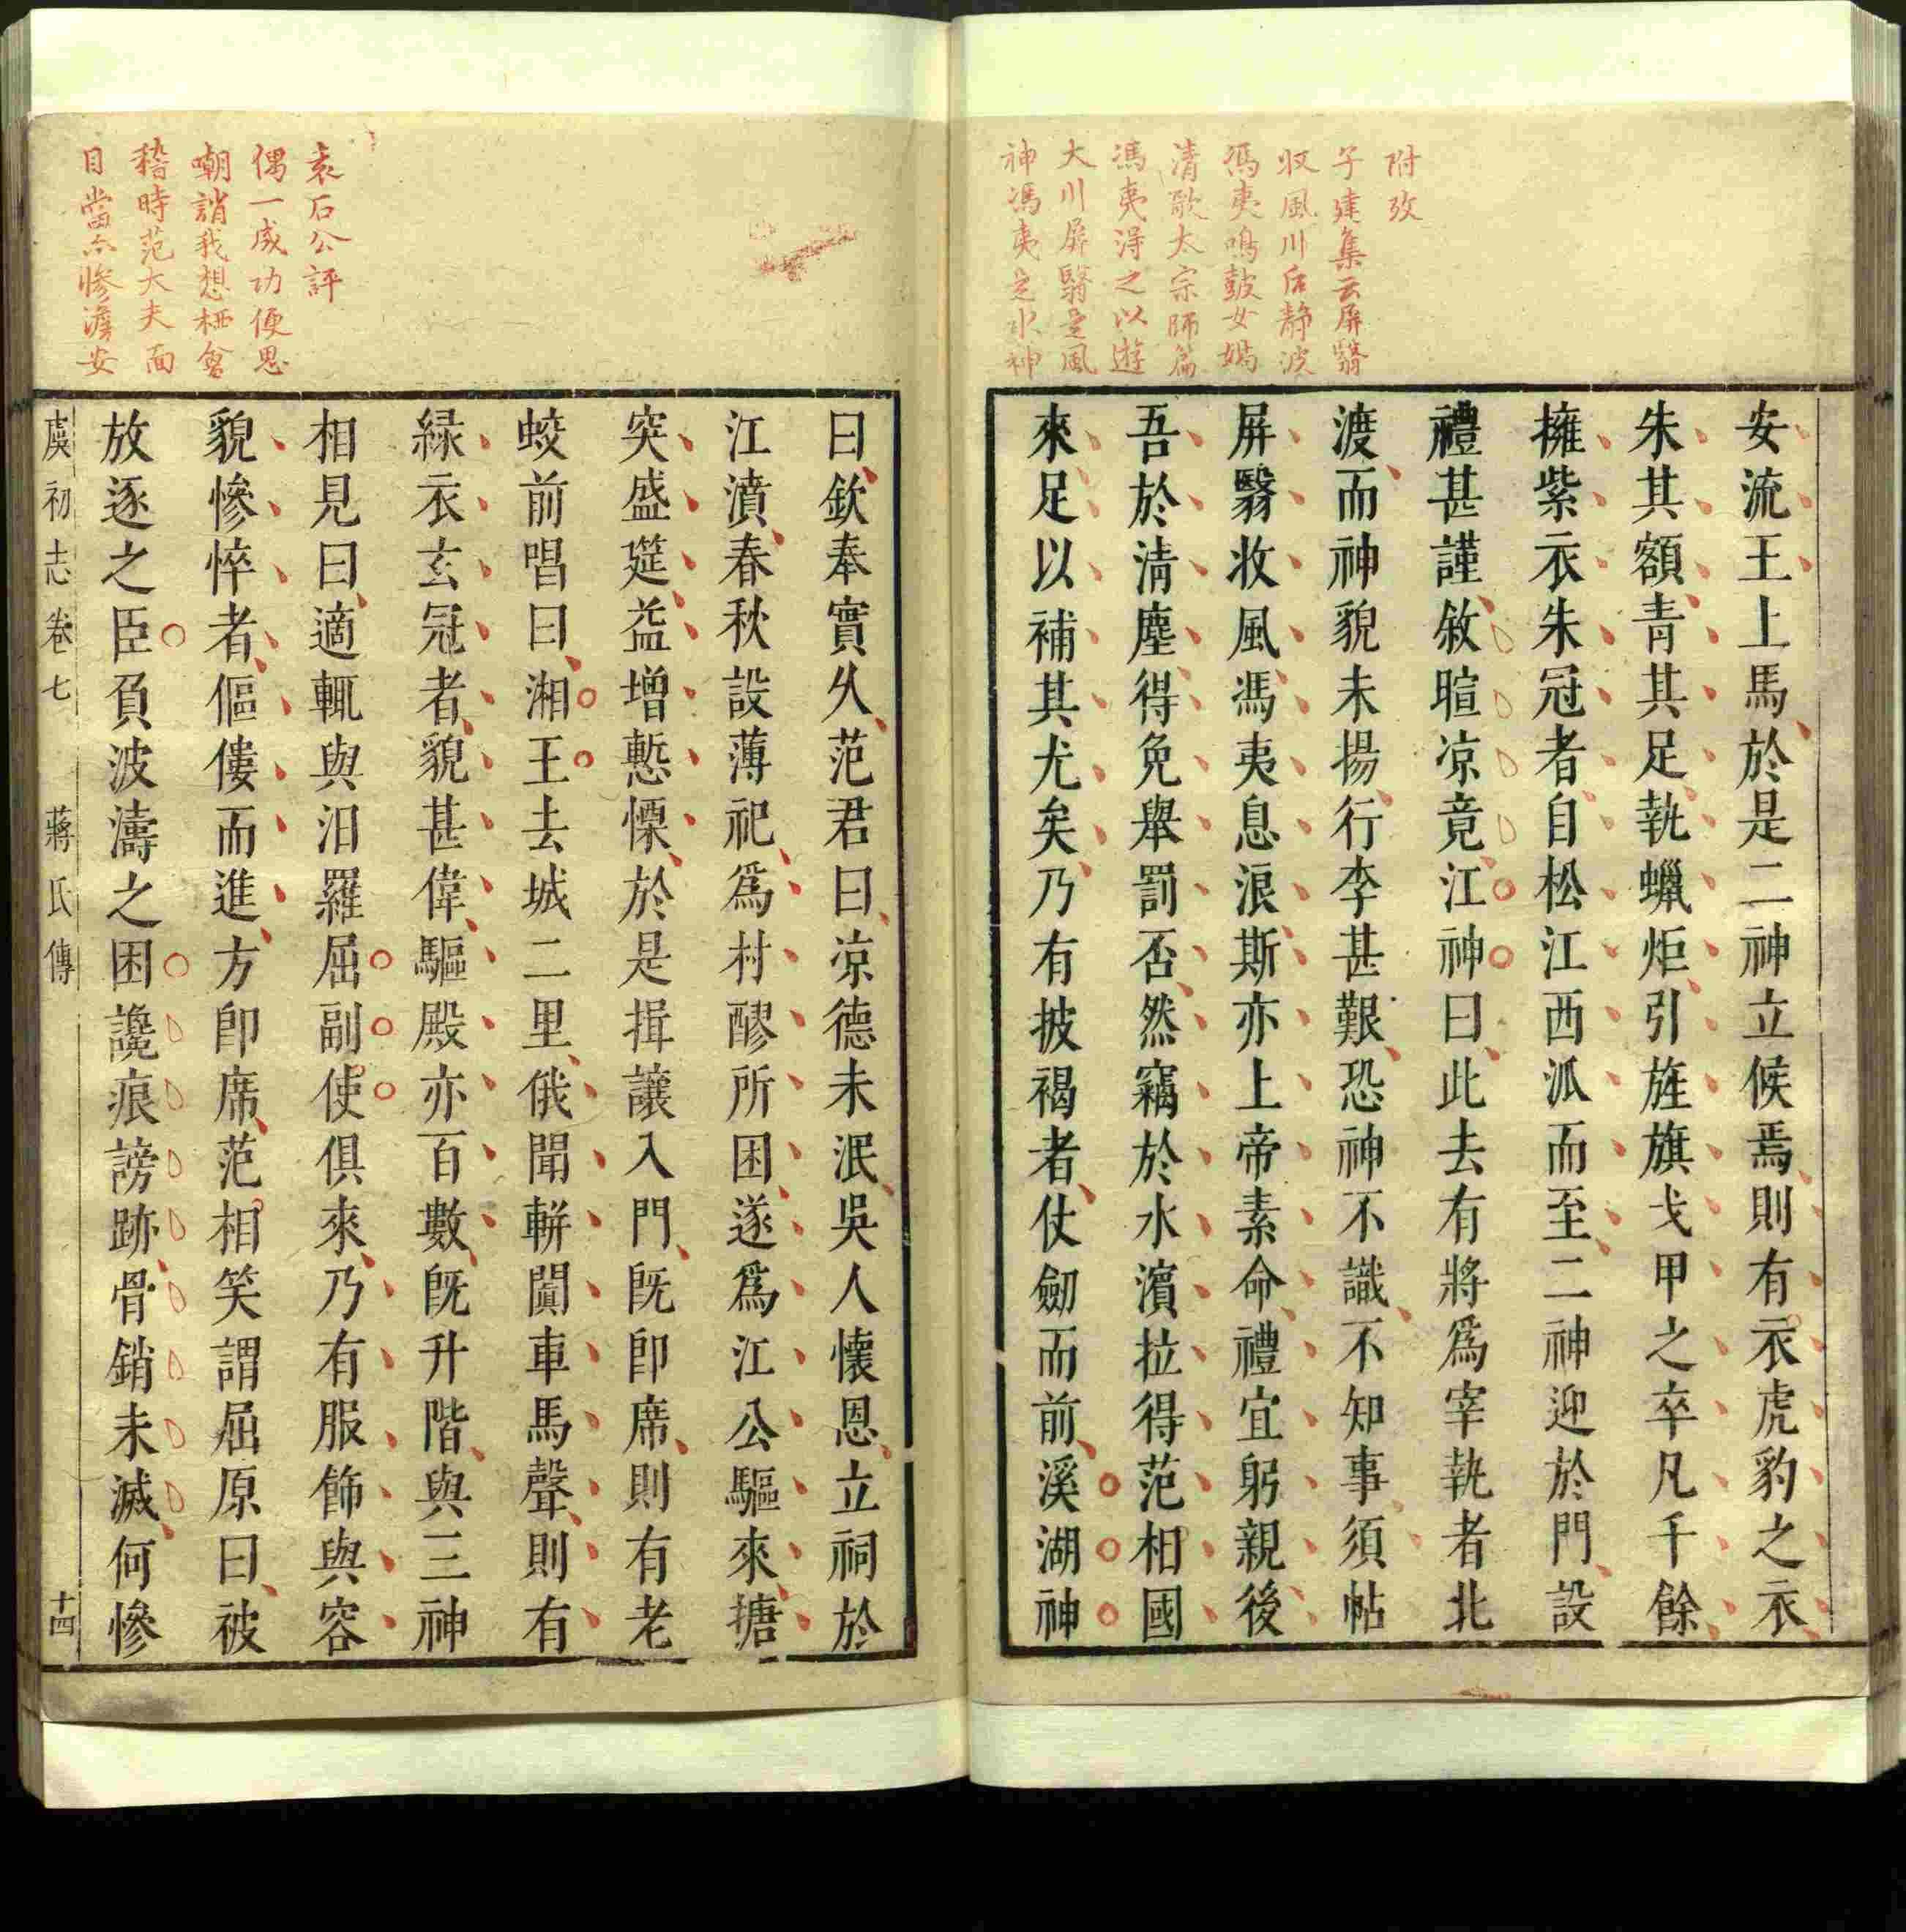 附攷
子建集云屏翳
收風川后靜波
馮夷鳴鼓女媧
清歌太宗師篇
馮夷得之以遊
大川屏翳是風
神馮夷是水神
安流王上馬於是二神立候焉則有衣虎豹之衣
朱其額青其足執蠟炬引旌旗戈甲之卒凡千餘
擁紫衣朱冠者自松江西派而至二神迎於門設
禮甚謹敘暄凉竟江神曰此去有將爲宰執者北
渡而神貌未揚行李甚艱恐神不識不知事須帖
屏翳收風馮夷息浪斯亦上帝素命禮宜躬親後
吾於清塵得免舉罰否然竊於水濱拉得范相國
來足以補其尤矣乃有披褐者仗劒而前溪湖神
袁石公評
偶一成功便思
嘲誚我想栖會
稽時范大夫面
目當亦慘澹安
曰欽奉實久范君曰凉德未泯吳人懷恩立祠於
江濆春秋設薄祀爲村醪所困遂爲江公驅來搪
突盛筵益增慙慄於是揖讓入門旣卽席則有老
蛟前唱曰湘王去城二里俄聞軿闐車馬聲則有
緑衣玄冠者貌甚偉驅殿亦百數旣升階與三神
相見曰適輒與汨羅屈副使俱來乃有服飾與容
貌慘悴者傴僂而進方卽席范相笑謂屈原曰被
放逐之臣負波濤之困讒痕謗跡骨銷未滅何慘
虞初志卷七 蔣氏傳 十四